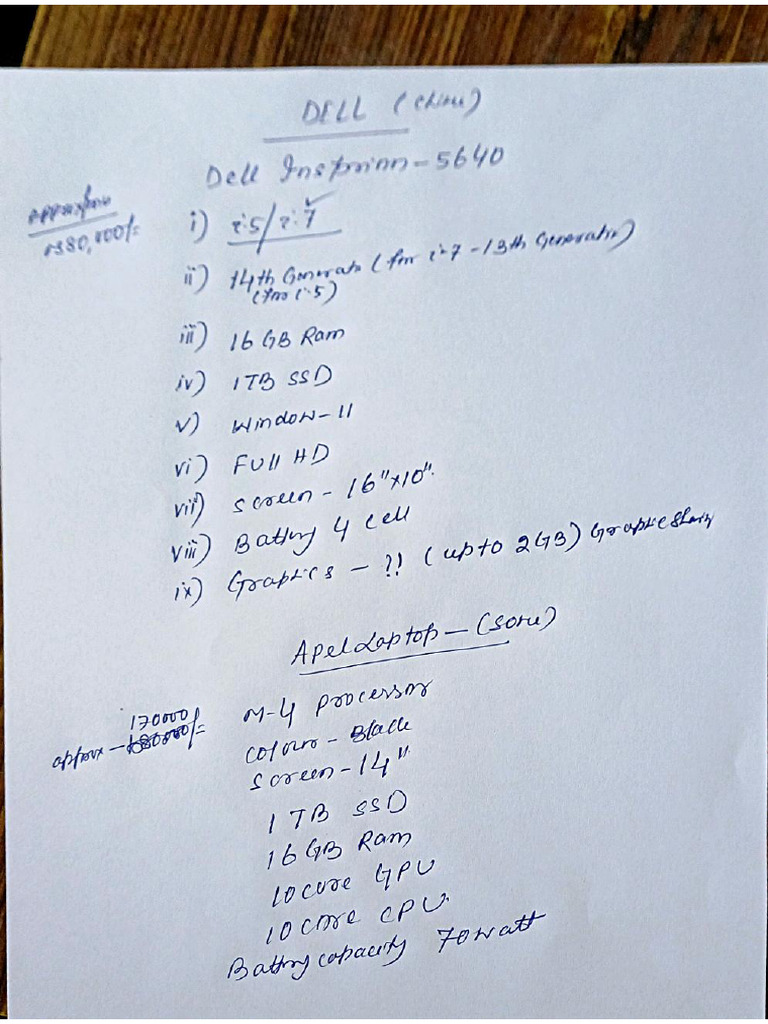 DELL (Chiru)
Dell Inspiron - 5640
approx
Rs 80,000/=
i) i5/i7 ✓
ii) 14th Generato (for i-7 - 13th Generation)
(for i-5)
iii) 16 GB Ram
iv) 1TB SSD
v) Window - 11
vi) Full HD
vii) Screen - 16"x10".
viii) Battery 4 cell
ix) Graphics - ?? (upto 2GB) Graphic
Apel Laptop - (Sonu)
170000/
approx - =
M-4 Processor
Colour - Black
Screen - 14"
1 TB SSD
16 GB Ram
10 core GPU
10 core CPU.
Battery capacity 70 watt